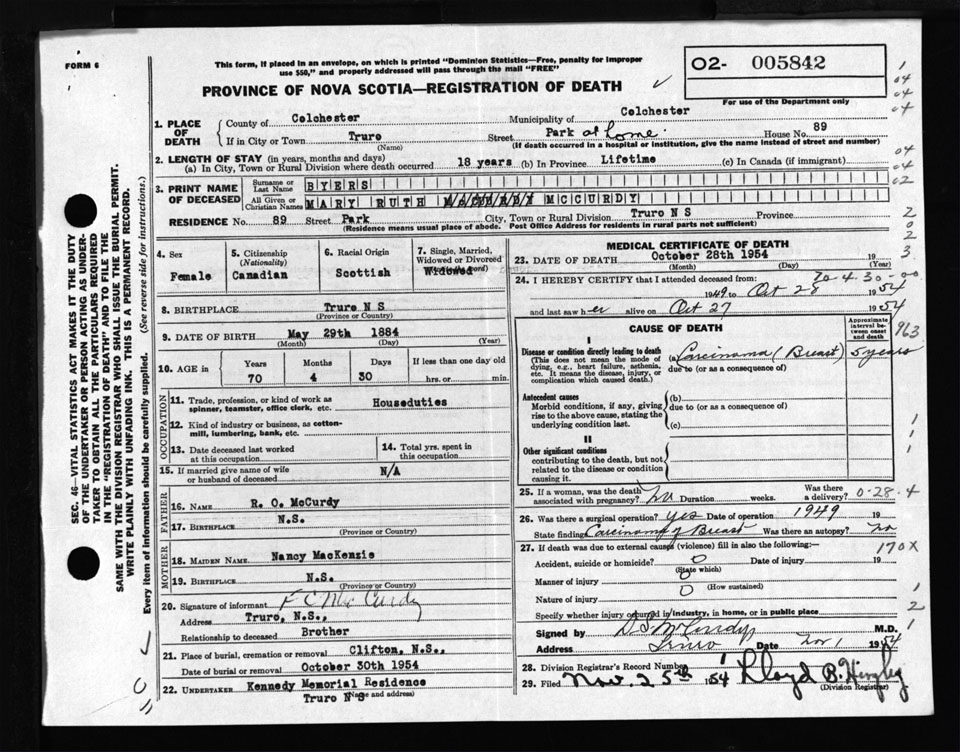 FORM 6
This form, if placed in an envelope, on which is printed "Dominion Statistics—Free, penalty for improper
use $50," and properly addressed will pass through the mail "FREE"
02- 005842
PROVINCE OF NOVA SCOTIA—REGISTRATION OF DEATH
For use of the Department only
1. PLACE OF DEATH
County of Colchester Municipality of Colchester
If in City or Town Truro Street Park at home House No. 89
(Name) (If death occurred in a hospital or institution, give the name instead of street and number)
2. LENGTH OF STAY (in years, months and days)
(a) In City, Town or Rural Division where death occurred 18 years (b) In Province Lifetime (c) In Canada (if immigrant)
3. PRINT NAME OF DECEASED
Surname or Last Name BYERS
All Given or Christian Names MARY RUTH MCCURDY
RESIDENCE No. 89 Street Park City, Town or Rural Division Truro N S Province
(Residence means usual place of abode. Post Office Address for residents in rural parts not sufficient)
4. Sex
Female
5. Citizenship (Nationality)
Canadian
6. Racial Origin
Scottish
7. Single, Married, Widowed or Divorced
Widowed
8. BIRTHPLACE Truro N S
(Province or Country)
9. DATE OF BIRTH May 29th 1884
(Month) (Day) (Year)
10. AGE in
Years Months Days If less than one day old
70 4 30 hrs. or min.
OCCUPATION
11. Trade, profession, or kind of work as spinner, teamster, office clerk, etc. Houseduties
12. Kind of industry or business, as cotton-mill, lumbering, bank, etc.
13. Date deceased last worked at this occupation
14. Total yrs. spent in this occupation
15. If married give name of wife or husband of deceased N/A
FATHER
16. NAME R. O. McCurdy
17. BIRTHPLACE N.S.
MOTHER
18. MAIDEN NAME Nancy MacKenzie
19. BIRTHPLACE N.S.
(Province or Country)
20. Signature of informant F C McCurdy
Address Truro, N.S.,
Relationship to deceased Brother
21. Place of burial, cremation or removal Clifton, N.S.,
Date of burial or removal October 30th 1954
22. UNDERTAKER Kennedy Memorial Residence
Truro N S (Name and address)
MEDICAL CERTIFICATE OF DEATH
23. DATE OF DEATH October 28th 1954 19
(Month) (Day) (Year)
24. I HEREBY CERTIFY that I attended deceased from:
1949 to Oct 28 1954
and last saw her alive on Oct 27 1954
CAUSE OF DEATH
Approximate interval between onset and death
I
Disease or condition directly leading to death
(This does not mean the mode of dying, e.g., heart failure, asthenia, etc. It means the disease, injury, or complication which caused death.)
(a) Carcinoma (Breast) 5 years
due to (or as a consequence of)
Antecedent causes
Morbid conditions, if any, giving rise to the above cause, stating the underlying condition last.
(b)
due to (or as a consequence of)
(c)
II
Other significant conditions
contributing to the death, but not related to the disease or condition causing it.
25. If a woman, was the death associated with pregnancy? No Duration weeks. Was there a delivery?
26. Was there a surgical operation? yes Date of operation 1949 19
State findings Carcinoma of Breast Was there an autopsy? no
27. If death was due to external causes (violence) fill in also the following:—
Accident, suicide or homicide? 0 Date of injury 19
(State which)
Manner of injury 0
(How sustained)
Nature of injury 0
Specify whether injury occurred in industry, in home, or in public place
Signed by D S McCurdy M.D.
Address Truro Date Nov 1 1954
28. Division Registrar's Record Number
29. Filed Nov. 25th 1954 Lloyd B. Hingley
(Division Registrar)
SEC. 46—VITAL STATISTICS ACT MAKES IT THE DUTY
OF THE UNDERTAKER OR PERSON ACTING AS UNDER-
TAKER TO OBTAIN ALL THE PARTICULARS REQUIRED
IN THE "REGISTRATION OF DEATH" AND TO FILE THE
SAME WITH THE DIVISION REGISTRAR WHO SHALL ISSUE THE BURIAL PERMIT.
WRITE PLAINLY WITH UNFADING INK. THIS IS A PERMANENT RECORD.
Every item of information should be carefully supplied. (See reverse side for instructions.)
20-4-30-00
963
0-28-4
170X